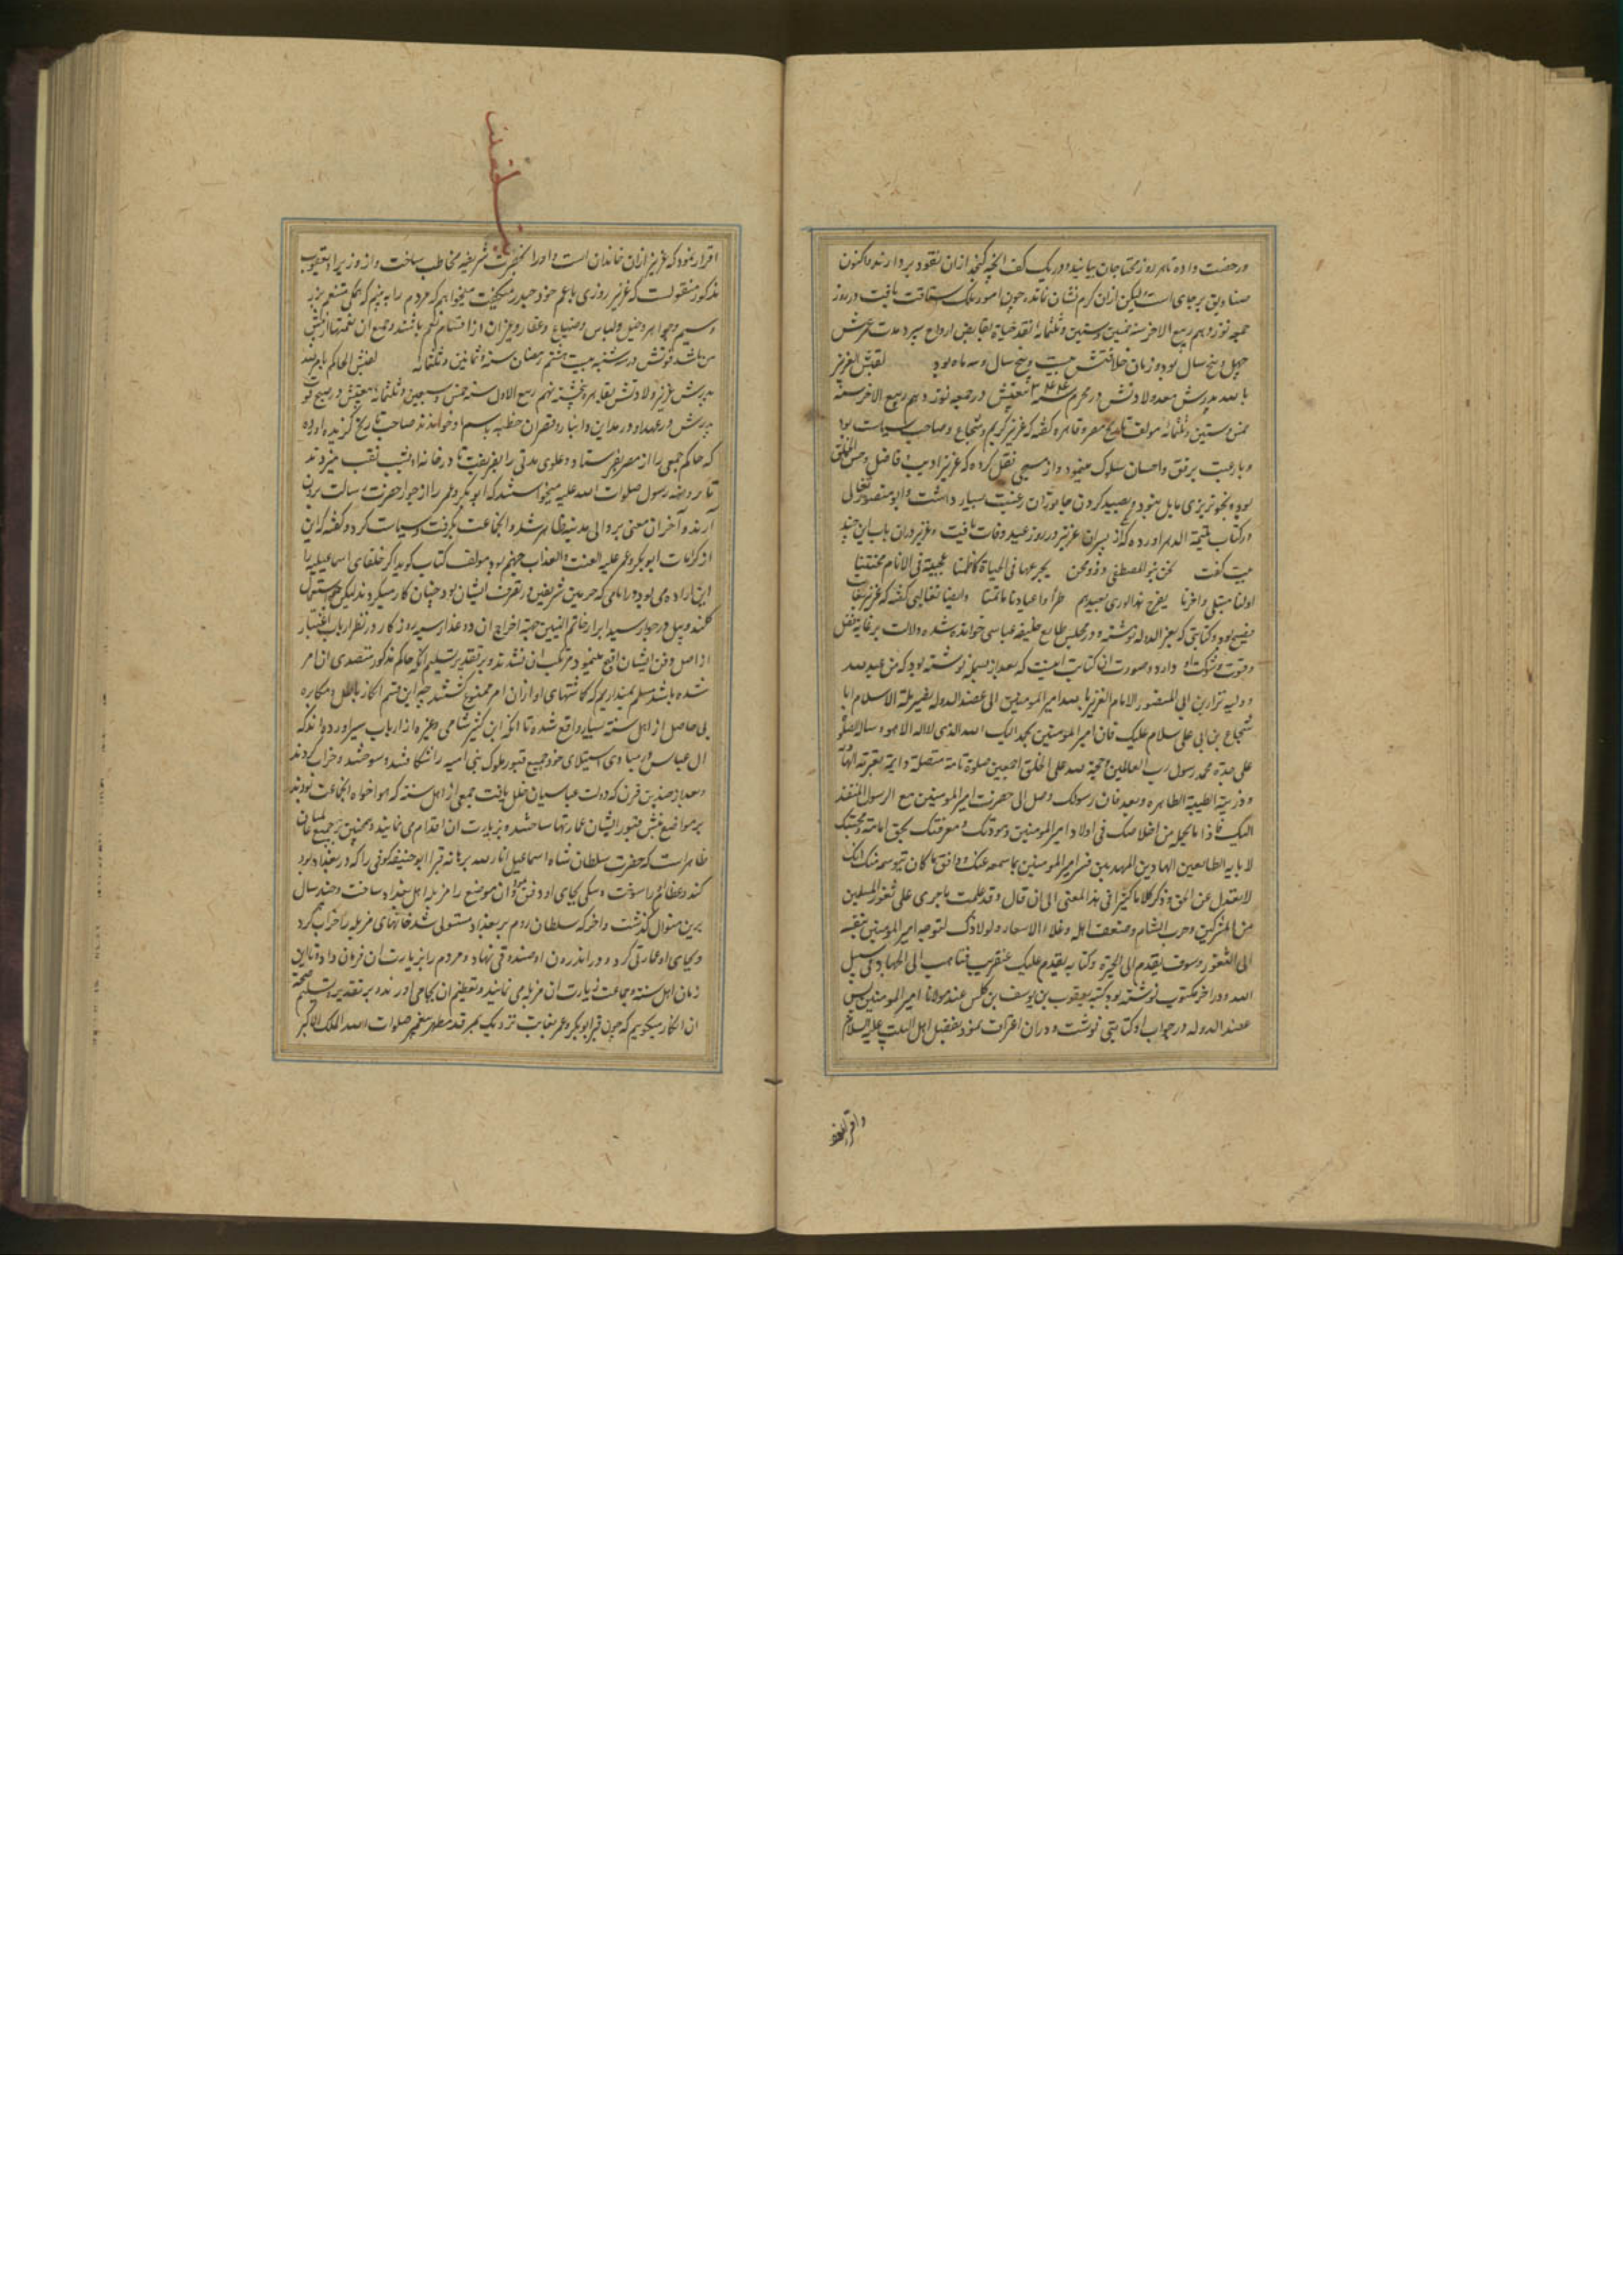 و رخصت داده تا هر روز محتاجان بیایند و در یک کف آنچه کنجد ازان نقود بردارند و اکنون
صنادیق بر جای است لیکن ازان کرم نشان نمانده چون امور ملک استقامت یافت در روز
جمعه نوزدهم ربیع الاخر سنه خمس و ستین و ثلثمائه نقد حیاة بقابض ارواح سپرد مدت عمرش
چهل و پنج سال بود و زمان خلافتش بیست و پنج سال و سه ماه بود لقبش العزیز
بالله پدرش معد ولادتش در محرم سنه ۳۴۴ بیعتش در جمعه نوزدهم ربیع الاخر سنه
خمس و ستین و ثلثمائه مولف تاریخ مصر و قاهره گفته که عزیز کریم و شجاع و صاحب سیاست بود
و با رعیت برفق و احسان سلوک مینمود و از مسبحی نقل کرده که عزیز ادیب و فاضل و حسن الخلق
بود و بخونریزی مایل نبود و بصید کردن جانوران رغبت بسیار داشت و ابو منصور ثعالبی
در کتاب یتیمة الدهر آورده که از پسران عزیز در روز عید وفات یافت و عزیز دران باب این چند
بیت گفت نحن بنو المصطفی ذوو محن یجرعها فی الحیاة کاظمنا عجیبة فی الانام محنتنا
اولنا مبتلی و اخرنا یفرح هذا الوری بعیدهم طرا و اعیادنا ماتمنا و ایضا ثعالبی گفته که عزیز بغایت
فصیح بود و کتابتی که بعز الدوله نوشته و در مجلس طایع خلیفه عباسی خوانده شده دلالت بر غایة فضل
و قوت و شوکت او دارد و صورت آن کتابت اینست که بعد از بسمله نوشته بود که من عبد الله
و ولیه نزار بن ابی المنصور الامام العزیز بالله امیر المومنین الی عضد الدوله نصیر ملة الاسلام ابا
شجاع بن ابی علی سلام علیک فان امیر المومنین یحمد الیک الله الذی لا اله الا هو و یساله الصلوة
علی جده محمد رسول رب العالمین و حجة الله علی الخلق اجمعین صلوة تامة متصلة دایمة بعترته الهادیة
و ذریته الطیبة الطاهره و بعد فان رسولک وصل الی حضرت امیر المومنین مع الرسول المنفذ
الیک فادی ما تحمله من اخلاصک فی اولاد امیر المومنین و مودتک و معرفتک بحق امامته و محبتک
لابایه الطایعین الهادین المهدیین فسر امیر المومنین بما سمعه عنک و وافق ما کان یتوسمه منک انک
لا تعدل عن الحق و ذکر کلاما کثیرا فی هذا المعنی الی ان قال و قد علمت ما جری علی ثغور المسلمین
من المشرکین و خراب الشام و ضعف اهله و غلاء الاسعار و لولا ذلک لتوجه امیر المومنین بنفسه
الی الثغور و سوف یقدم الی الحیرة و کتابه یقدم علیک عنقریب فتاهب الی الجهاد فی سبیل
الله و در اخر مکتوب نوشته بود کتبه یعقوب بن یوسف بن کلس عند مولانا امیر المومنین پس
عضد الدوله در جواب او کتابتی نوشت و دران اعتراف نمود بفضل اهل البیت علیهم السلام
و اقرار نمود
اقرار نمود که عزیز ازان خاندان است و او را بحضرت شریفه مخاطب ساخت و از وزیر او یعقوب
مذکور منقولست که عزیز روزی با عم خود حیدره میگفت میخواهم که مردم را به بینم که همگی متنعم بزر
و سیم و جواهر و خیل و لباس و ضیاع و عقار و غیر آن از اقسام نعم باشند و جمیع آن نعمتها از پیش
من باشد فوتش در سه شنبه بیست هشتم رمضان سنة ثمانین و ثلثمائه لقبش الحاکم بامر الله
پدرش عزیز ولادتش بقاهره پنجشنبه نهم ربیع الاول سنه خمس و سبعین و ثلثمائه بیعتش در صبح فوت
پدرش در عهد او در مداین و انبار و قصران خطبه باسم او خواندند صاحب تاریخ گزیده آورده
که حاکم جمعی را از مصر بفرستاد و علوی مدنی را بفریفت تا در خانه او بشب نقب میزدند
تا روضه رسول صلوات الله علیه میخواستند که ابو بکر و عمر را از جوار حضرت رسالت بیرون
آرند و آخر آن معنی بر والی مدینه ظاهر شد و آنجماعت بگرفت و سیاست کرد و گفته که این
از کرامات ابو بکر و عمر علیه العنت و العذاب جهنم بود مولف کتاب گوید اگر خلفای اسماعیلیه را
این اراده می بود در ایامی که حرمین شریفین در تصرف ایشان بود چنان کار میکردند لیکن چون استعمال
کلند و بیل در جوار سید ابرار خاتم النبیین جهة اخراج آن دو غدار سیه روزگار در نظر ارباب اعتبار
از اصل دفن ایشان اقبح مینمود مرتکب آن نشدند و بر تقدیر تسلیم آنکه حاکم مذکور متصدی آن امر
شده باشد مسلم نمیداریم که کاشتهای او ازان امر ممنوع گشتند چه این قسم انکار باطل و مکابره
بی حاصل از اهل سنة بسیار واقع شده تا آنکه ابن کثیر شامی و غیره از ارباب سیر آورده اند که
ال عباس در مبادی استیلای خود جمیع قبور ملوک بنی امیه را شکافتند و سوختند و خراب کردند
و بعد از چندین قرن که دولت عباسیان خلل یافت جمعی از اهل سنة که هواخواه آنجماعت بودند
بر مواضع نبش قبور ایشان عمارتها ساختند و بزیارت آن اقدام می نمایند و همچنین بر جمیع عالمیان
ظاهر است که حضرت سلطان شاه اسماعیل انار الله برهانه قبر ابو حنیفه کوفی را که در بغداد بود
کند و عظام او را سوخت و سگی بجای او دفن نمود و آن موضع را مزبله اهل بغداد ساخت و چند سال
برین منوال گذشت و اخر که سلطان روم بر بغداد مستولی شد خانهای مزبله را خراب کرد
و بجای او عمارتی کرد و در اندرون او صندوقی نهاد و مردم را بزیارت آن فرمان داد و تا این
زمان اهل سنة و جماعت زیارت آن مزبله می نمایند و تعظیم آن بجا می آورند و بر تقدیر تسلیم صحة
آن انکار میگوییم که چون قبر ابو بکر و عمر بغایت نزدیک بمرقد مطهر پیغمبر صلوات الله الملک الاکبر